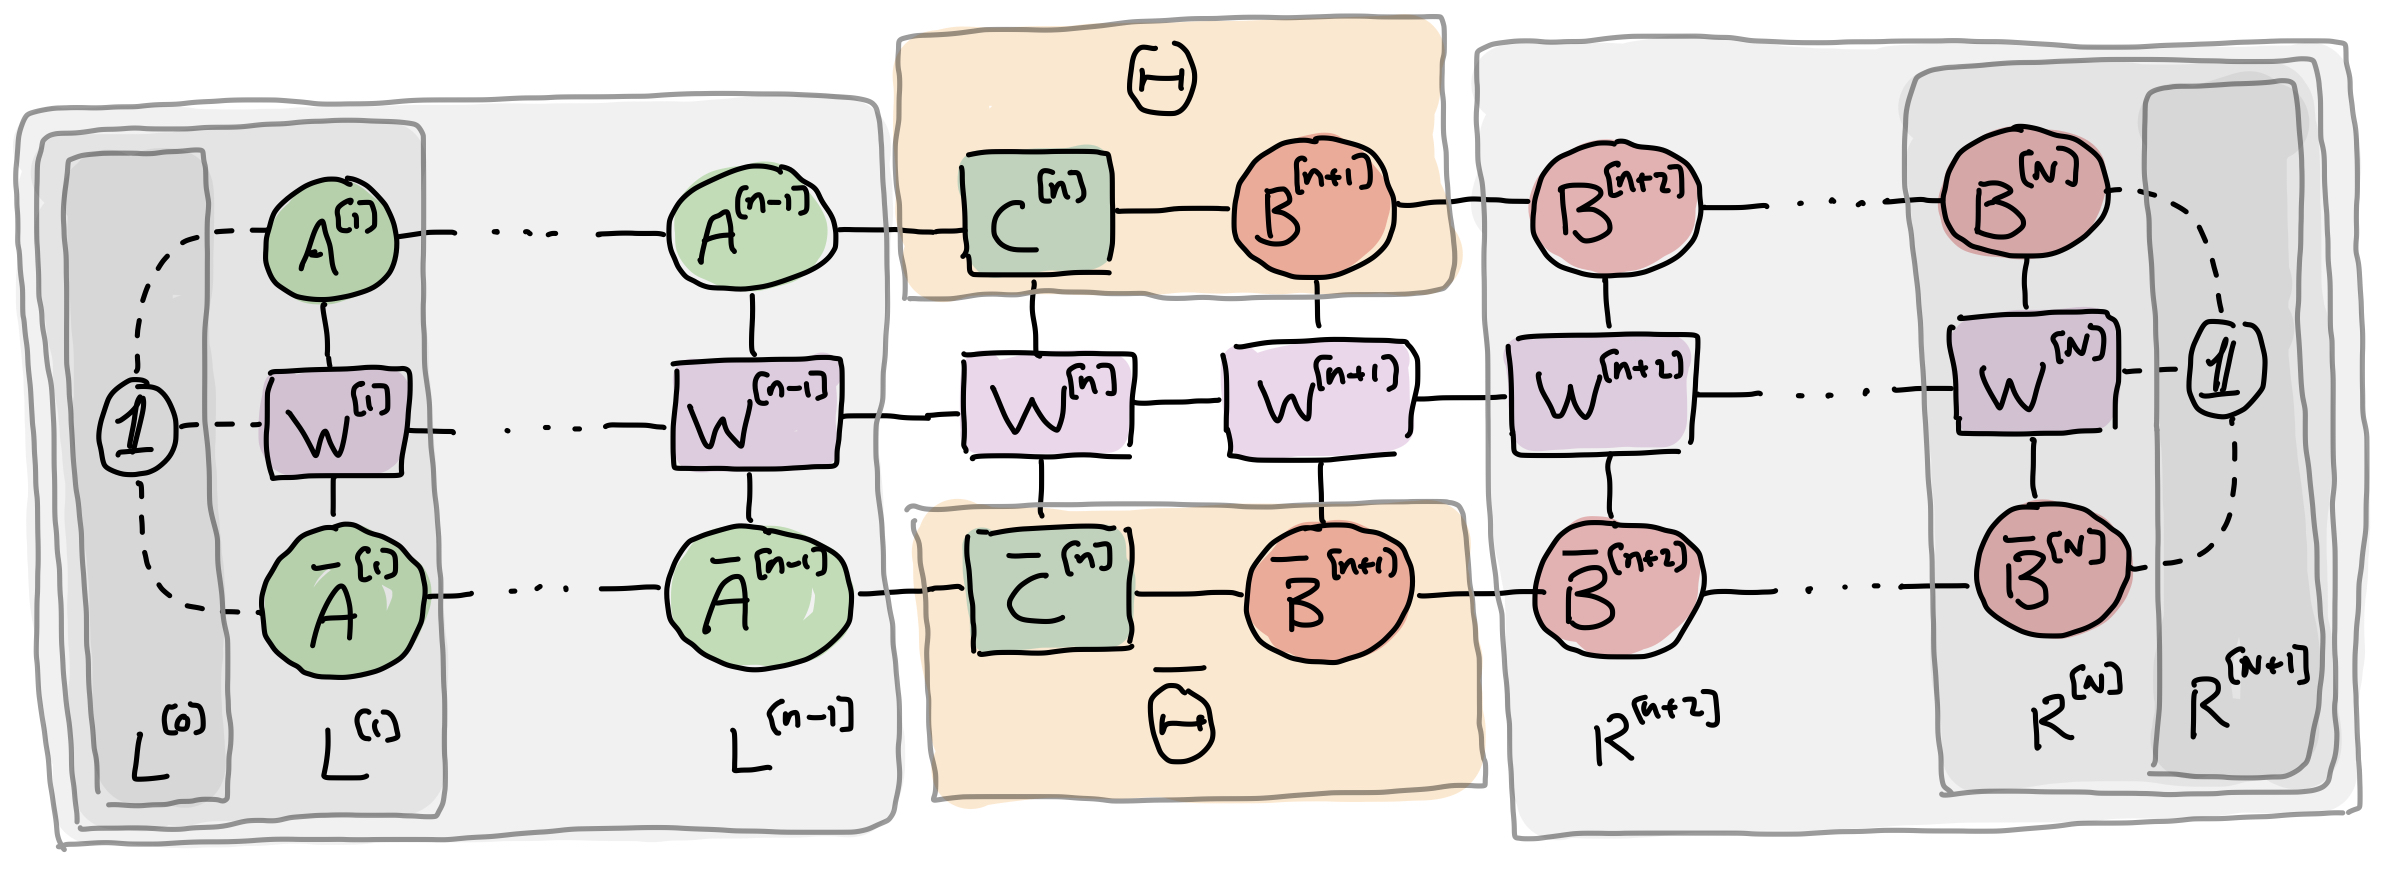 Θ
A^[1] A^[n-1] C^[n] B^[n+1] B^[n+2] B^[N]
𝟙 W^[1] W^[n-1] W^[n] W^[n+1] W^[n+2] W^[N] 𝟙
Ā^[1] Ā^[n-1] C̄^[n] B̄^[n+1] B̄^[n+2] B̄^[N]
L^[0] L^[1] L^[n-1] Θ̄ R^[n+2] R^[N] R^[N+1]